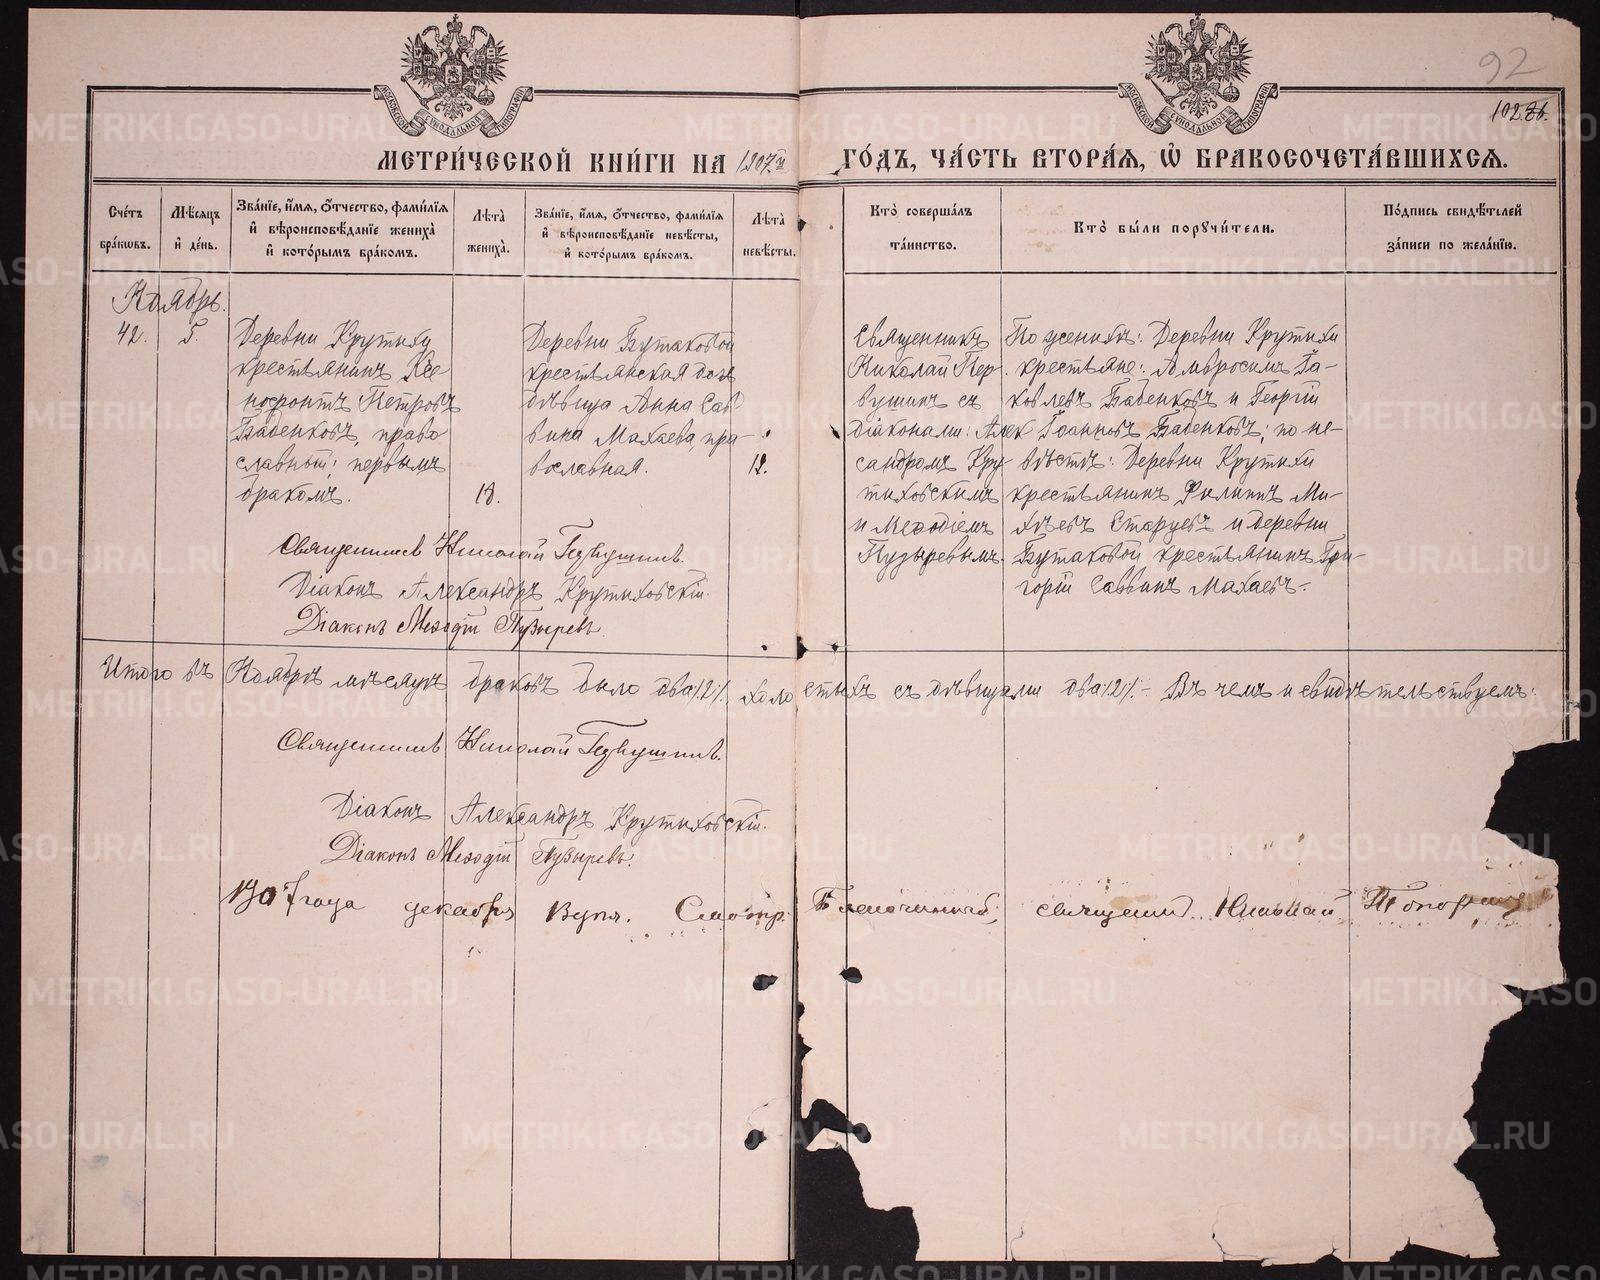 92
102 об.
МОСКОВСКОЙ СѴНОДАЛЬНОЙ ТИПОГРАФІИ
МОСКОВСКОЙ СѴНОДАЛЬНОЙ ТИПОГРАФІИ
МЕТРИ́ЧЕСКОЙ КНИ́ГИ НА 1907й ГО́ДЪ, ЧА́СТЬ ВТОРА́Я, Ѽ БРАКОСОЧЕТА́ВШИХСЯ.
Сче́тъ бра́ковъ.
Мѣ́сяцъ и҆ де́нь.
Зва́нїе, и҆́мя, ѻ҆́тчество, фами́лїя и҆ вѣроисповѣ́данїе жениха̀ и҆ кото́рымъ бра́комъ.
Лѣ́та жениха̀.
Зва́нїе, и҆́мя, ѻ҆́тчество, фами́лїя и҆ вѣроисповѣ́данїе невѣ́сты, и҆ кото́рымъ бра́комъ.
Лѣ́та невѣ́сты.
Кто̀ соверша́лъ та́инство.
Кто̀ бы́ли порꙋчи́тели.
По́дпись свидѣ́телей за́писи по жела́нїю.
Ноябрь.
42.
5.
Деревни Крутихи
крестьянинъ Ксе
нофонтъ Петровъ
Бабенковъ, право
славный; первымъ
бракомъ.
18.
Деревни Бутаковой
крестьянская доч
дѣвица Анна Сав
вина Махаева, пра-
вославная.
18.
Священникъ
Николай Пер
вушинъ съ
Діаконами: Алек
сандромъ Кру
тиховскимъ
и Меѳодіемъ
Пузыревымъ.
По женихѣ: Деревни Крутихи
крестьяне: Амвросимъ Іа-
ковлевъ Бабенковъ и Георгій
Іоанновъ Бабенковъ; по не-
вѣстѣ: Деревни Крутихи
крестьянинъ Филиппъ Ми-
хѣевъ Старцевъ и деревни
Бутаковой крестьянинъ Гри-
горій Саввинъ Махаевъ.
Священникъ Николай Первушинъ.
Діаконъ Александръ Крутиховскій.
Діаконъ Меѳодій Пузыревъ.
Итого въ Ноябрѣ мѣсяцѣ браковъ было два /2/. холостыхъ съ дѣвицами два /2/. – Въ чемъ и свидѣтельствуемъ:
Священникъ Николай Первушинъ.
Діаконъ Александръ Крутиховскій.
Діаконъ Меѳодій Пузыревъ.
1907 года декабря Смотр. Благочинный, священник Николай
METRIKI.GASO-URAL.RU